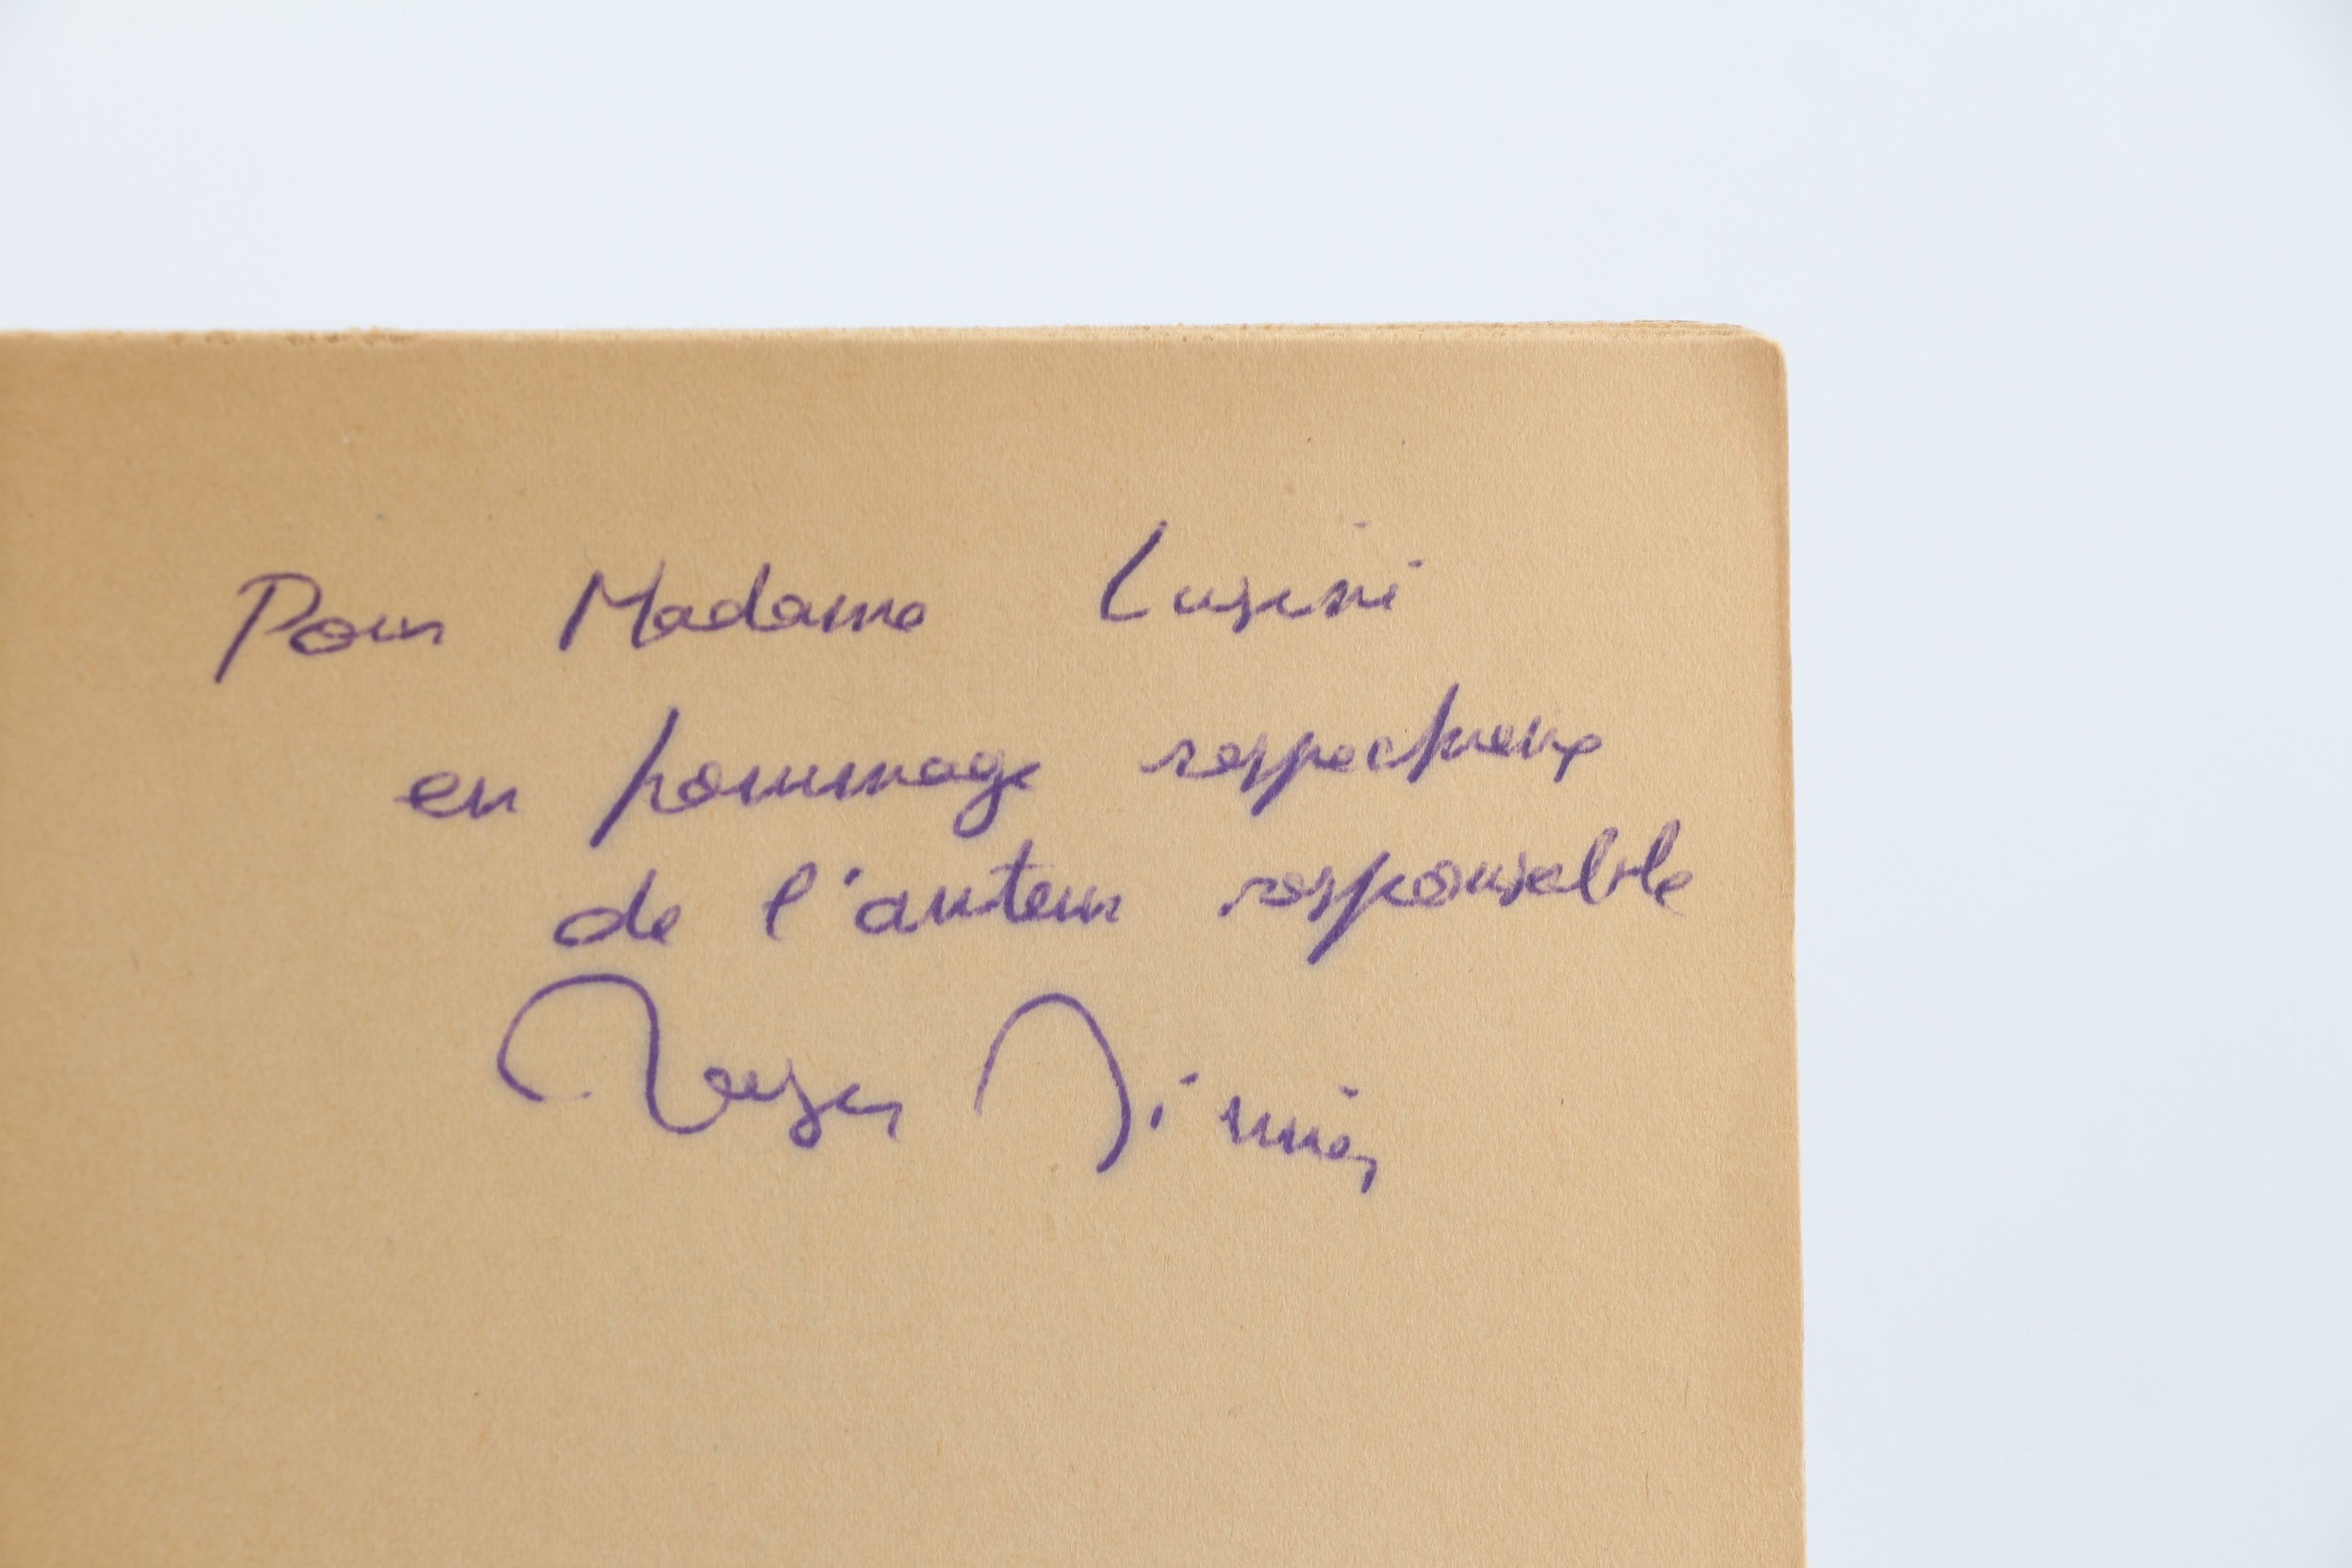 Pour Madame
en hommage respectueux
de l'auteur responsable
Roger Nimier